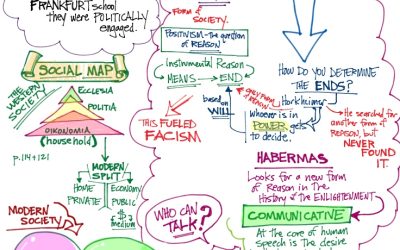 FRANKFURT school
they were POLITICALLY
engaged.
SOCIAL MAP
THE WESTERN
SOCIETY
ECCLESIA
POLITIA
OIKONOMIA
(household)
p. 114 + 121
MODERN
SPLIT
HOME
PRIVATE
ECONOMY
PUBLIC
$ = medium
MODERN
SOCIETY
FORM &
SOCIETY.
POSITIVISM - the question
of REASON
Instrumental Reason
MEANS
END
based
on
WILL
ONLY FORM
of REASON
THIS FUELED
FACISM
whoever is in
POWER gets
to decide.
WHO CAN
TALK?
HOW DO YOU DETERMINE
THE ENDS?
Horkheimer
He searched for
another form of
REASON, but
NEVER
FOUND IT.
HABERMAS
Looks for a new form
of Reason in the
History of the ENLIGHTENMENT
COMMUNICATIVE
At the core of human
speech is the desire